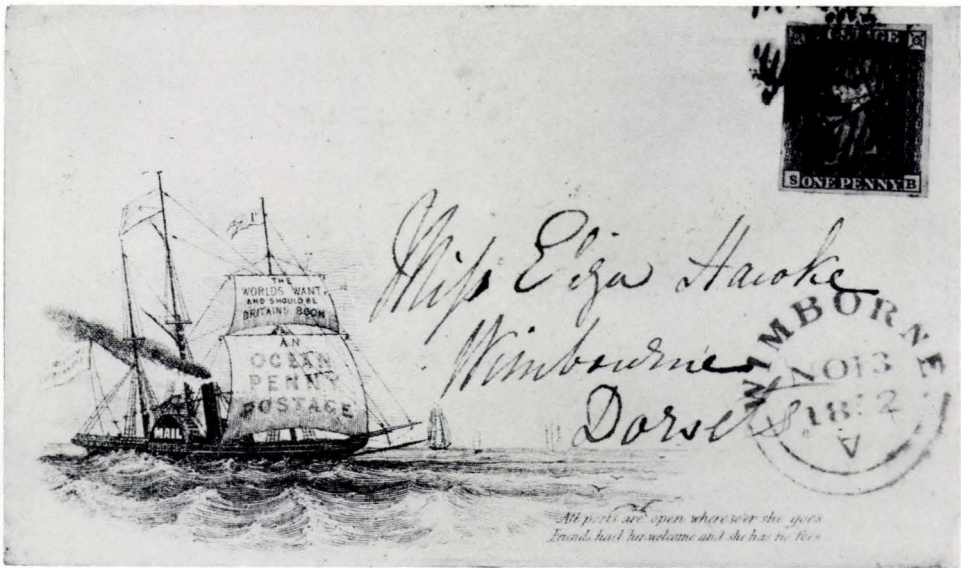 POSTAGE
S ONE PENNY B
THE
WORLDS WANT
AND SHOULD BE
BRITAINS BOON
AN
OCEAN
PENNY
POSTAGE
MAIL
Miss Eliza Hawke
Wimbourne
Dorset
WIMBORNE
NO 13
1852
A
All ports are open wheresoe'er she goes
Friends hail her welcome and she has no foes